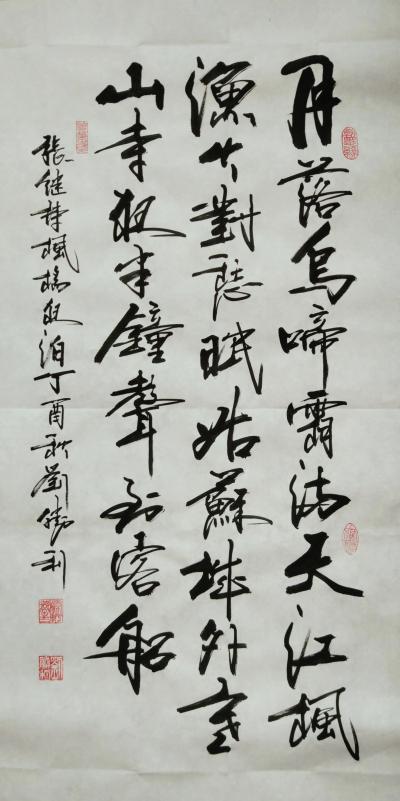 月落烏啼霜满天江楓
漁火對愁眠姑蘇城外寒
山寺夜半鐘聲到客船
張继诗楓橋夜泊丁酉秋劉勝利